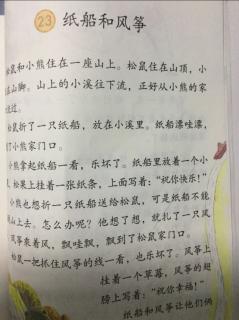 23 纸船和风筝
松鼠和小熊住在一座山上。松鼠住在山顶，小
在山脚。山上的小溪往下流，正好从小熊的家
流过。
松鼠折了一只纸船，放在小溪里。纸船漂哇漂，
了小熊家门口。
小熊拿起纸船一看，乐坏了。纸船里放着一个小
松果上挂着一张纸条，上面写着：“祝你快乐！”
小熊也想折一只纸船送给松鼠，可是纸船不能
山上去。怎么办呢？他想了想，就扎了一只风
风筝乘着风，飘哇飘，飘到了松鼠家门口。
松鼠一把抓住风筝的线一看，也乐坏了。风筝上
挂着一个草莓，风筝的翅
膀上写着：“祝你幸福！”
纸船和风筝让他们俩